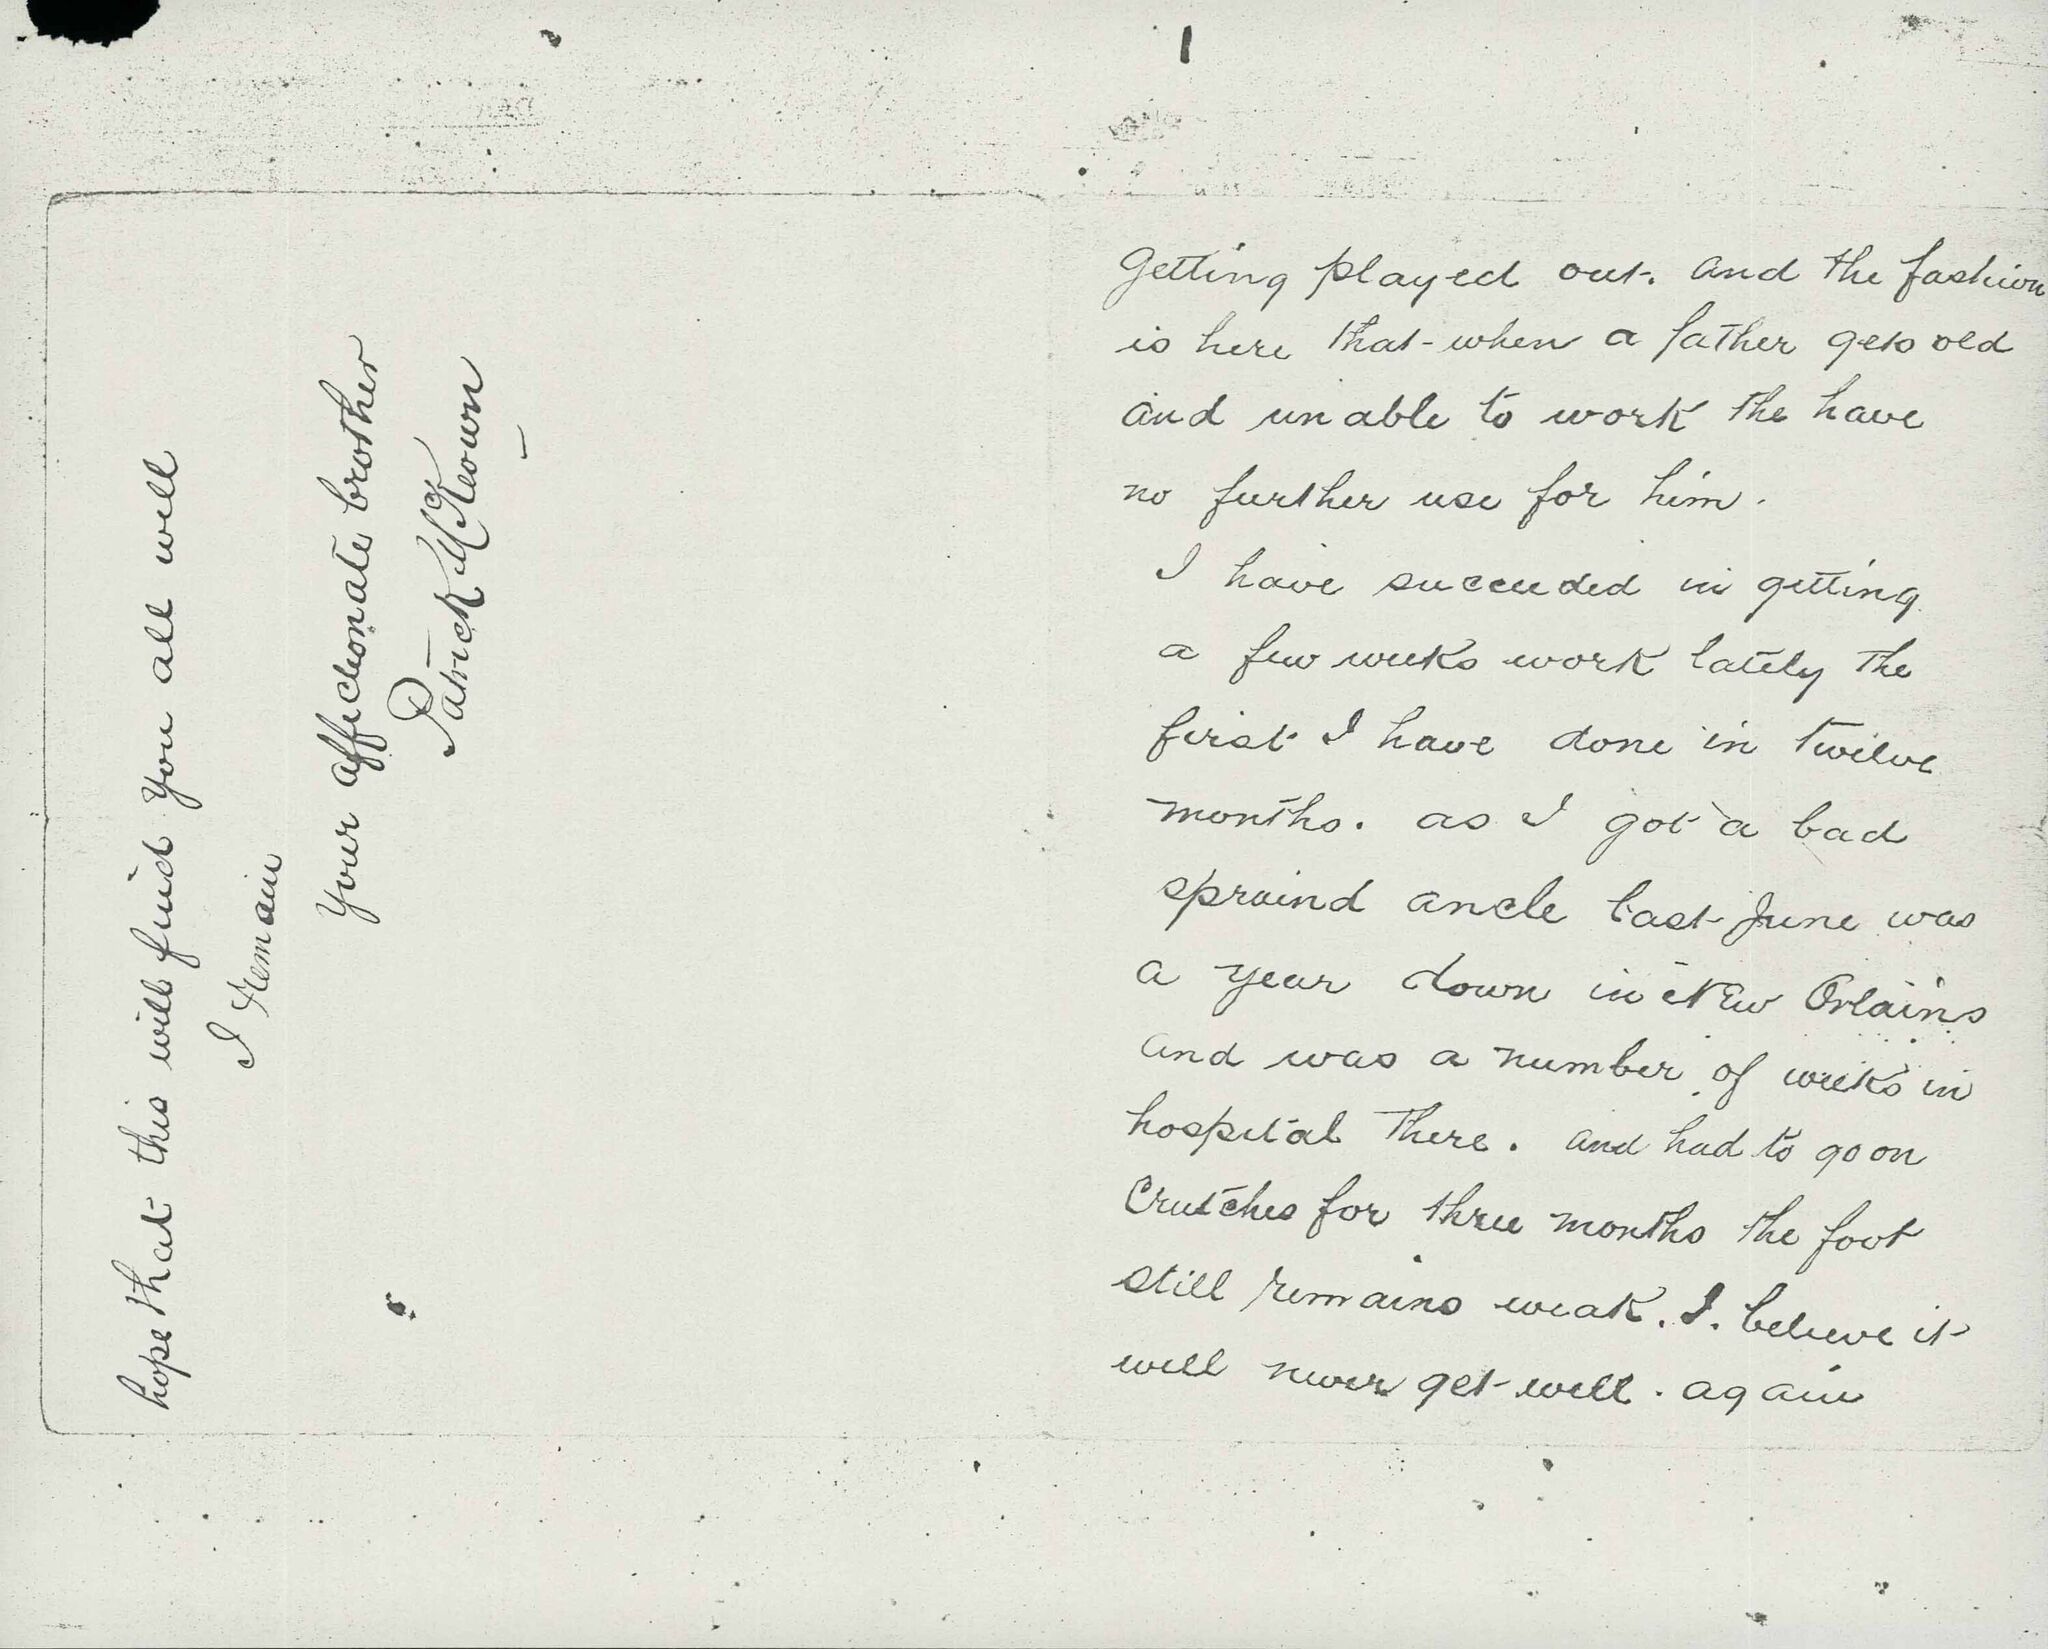 getting played out. and the fashion
is here that when a father gets old
and unable to work the have
no further use for him.
I have succeeded in getting
a few weeks work lately the
first I have done in twelve
months. as I got a bad
spraind ancle last June was
a year down in New Orlains
and was a number of weeks in
hospital there. and had to go on
Crutches for three months the foot
still remains weak. I. believe it
will never get well. again
hope that this will find you all well
I Remain
Your affectionate brother
Patrick McKeown